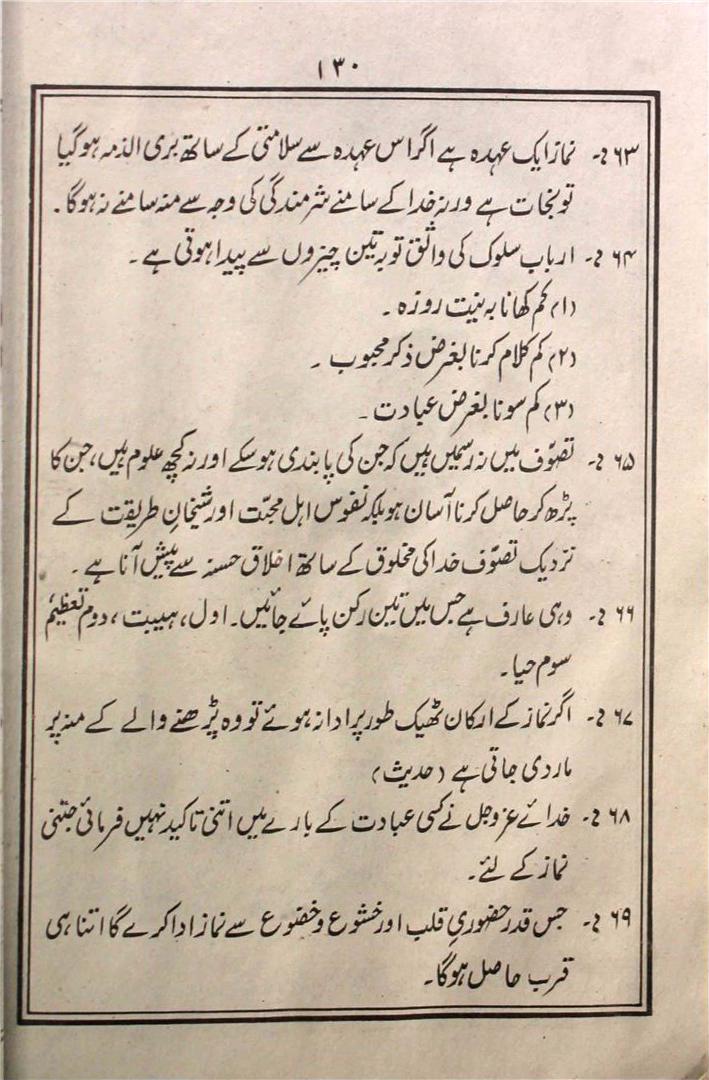 ۱۳۰
۶۳ ؎۔ نماز ایک عہدہ ہے اگر اس عہدہ سے سلامتی کے ساتھ بری الذمہ ہو گیا
تو نجات ہے ورنہ خدا کے سامنے شرمندگی کی وجہ سے منہ سامنے نہ ہوگا ۔
۶۴ ؎۔ ارباب سلوک کی واثق توبہ تین چیزوں سے پیدا ہوتی ہے ۔
(۱) کم کھانا بہ نیت روزہ ۔
(۲) کم کلام کرنا بغرض ذکر محبوب ۔
(۳) کم سونا بغرض عبادت ۔
۶۵ ؎۔ تصوّف میں نہ رسمیں ہیں کہ جن کی پابندی ہو سکے اور نہ کچھ علوم ہیں، جن کا
پڑھ کر حاصل کرنا آسان ہو بلکہ نفوس اہل محبّت اور شیخانِ طریقت کے
نزدیک تصوّف خدا کی مخلوق کے ساتھ اخلاق حسنہ سے پیش آنا ہے ۔
۶۶ ؎۔ وہی عارف ہے جس میں تین رکن پائے جائیں۔ اول، ہیبت، دوم تعظیم
سوم حیا۔
۶۷ ؎۔ اگر نماز کے ارکان ٹھیک طور پر ادا نہ ہوئے تو وہ پڑھنے والے کے منہ پر
مار دی جاتی ہے (حدیث)
۶۸ ؎۔ خدائے عزوجل نے کسی عبادت کے بارے میں اتنی تاکید نہیں فرمائی جتنی
نماز کے لئے۔
۶۹ ؎۔ جس قدر حضوریِ قلب اور خشوع و خضوع سے نماز ادا کرے گا اتنا ہی
قرب حاصل ہوگا۔